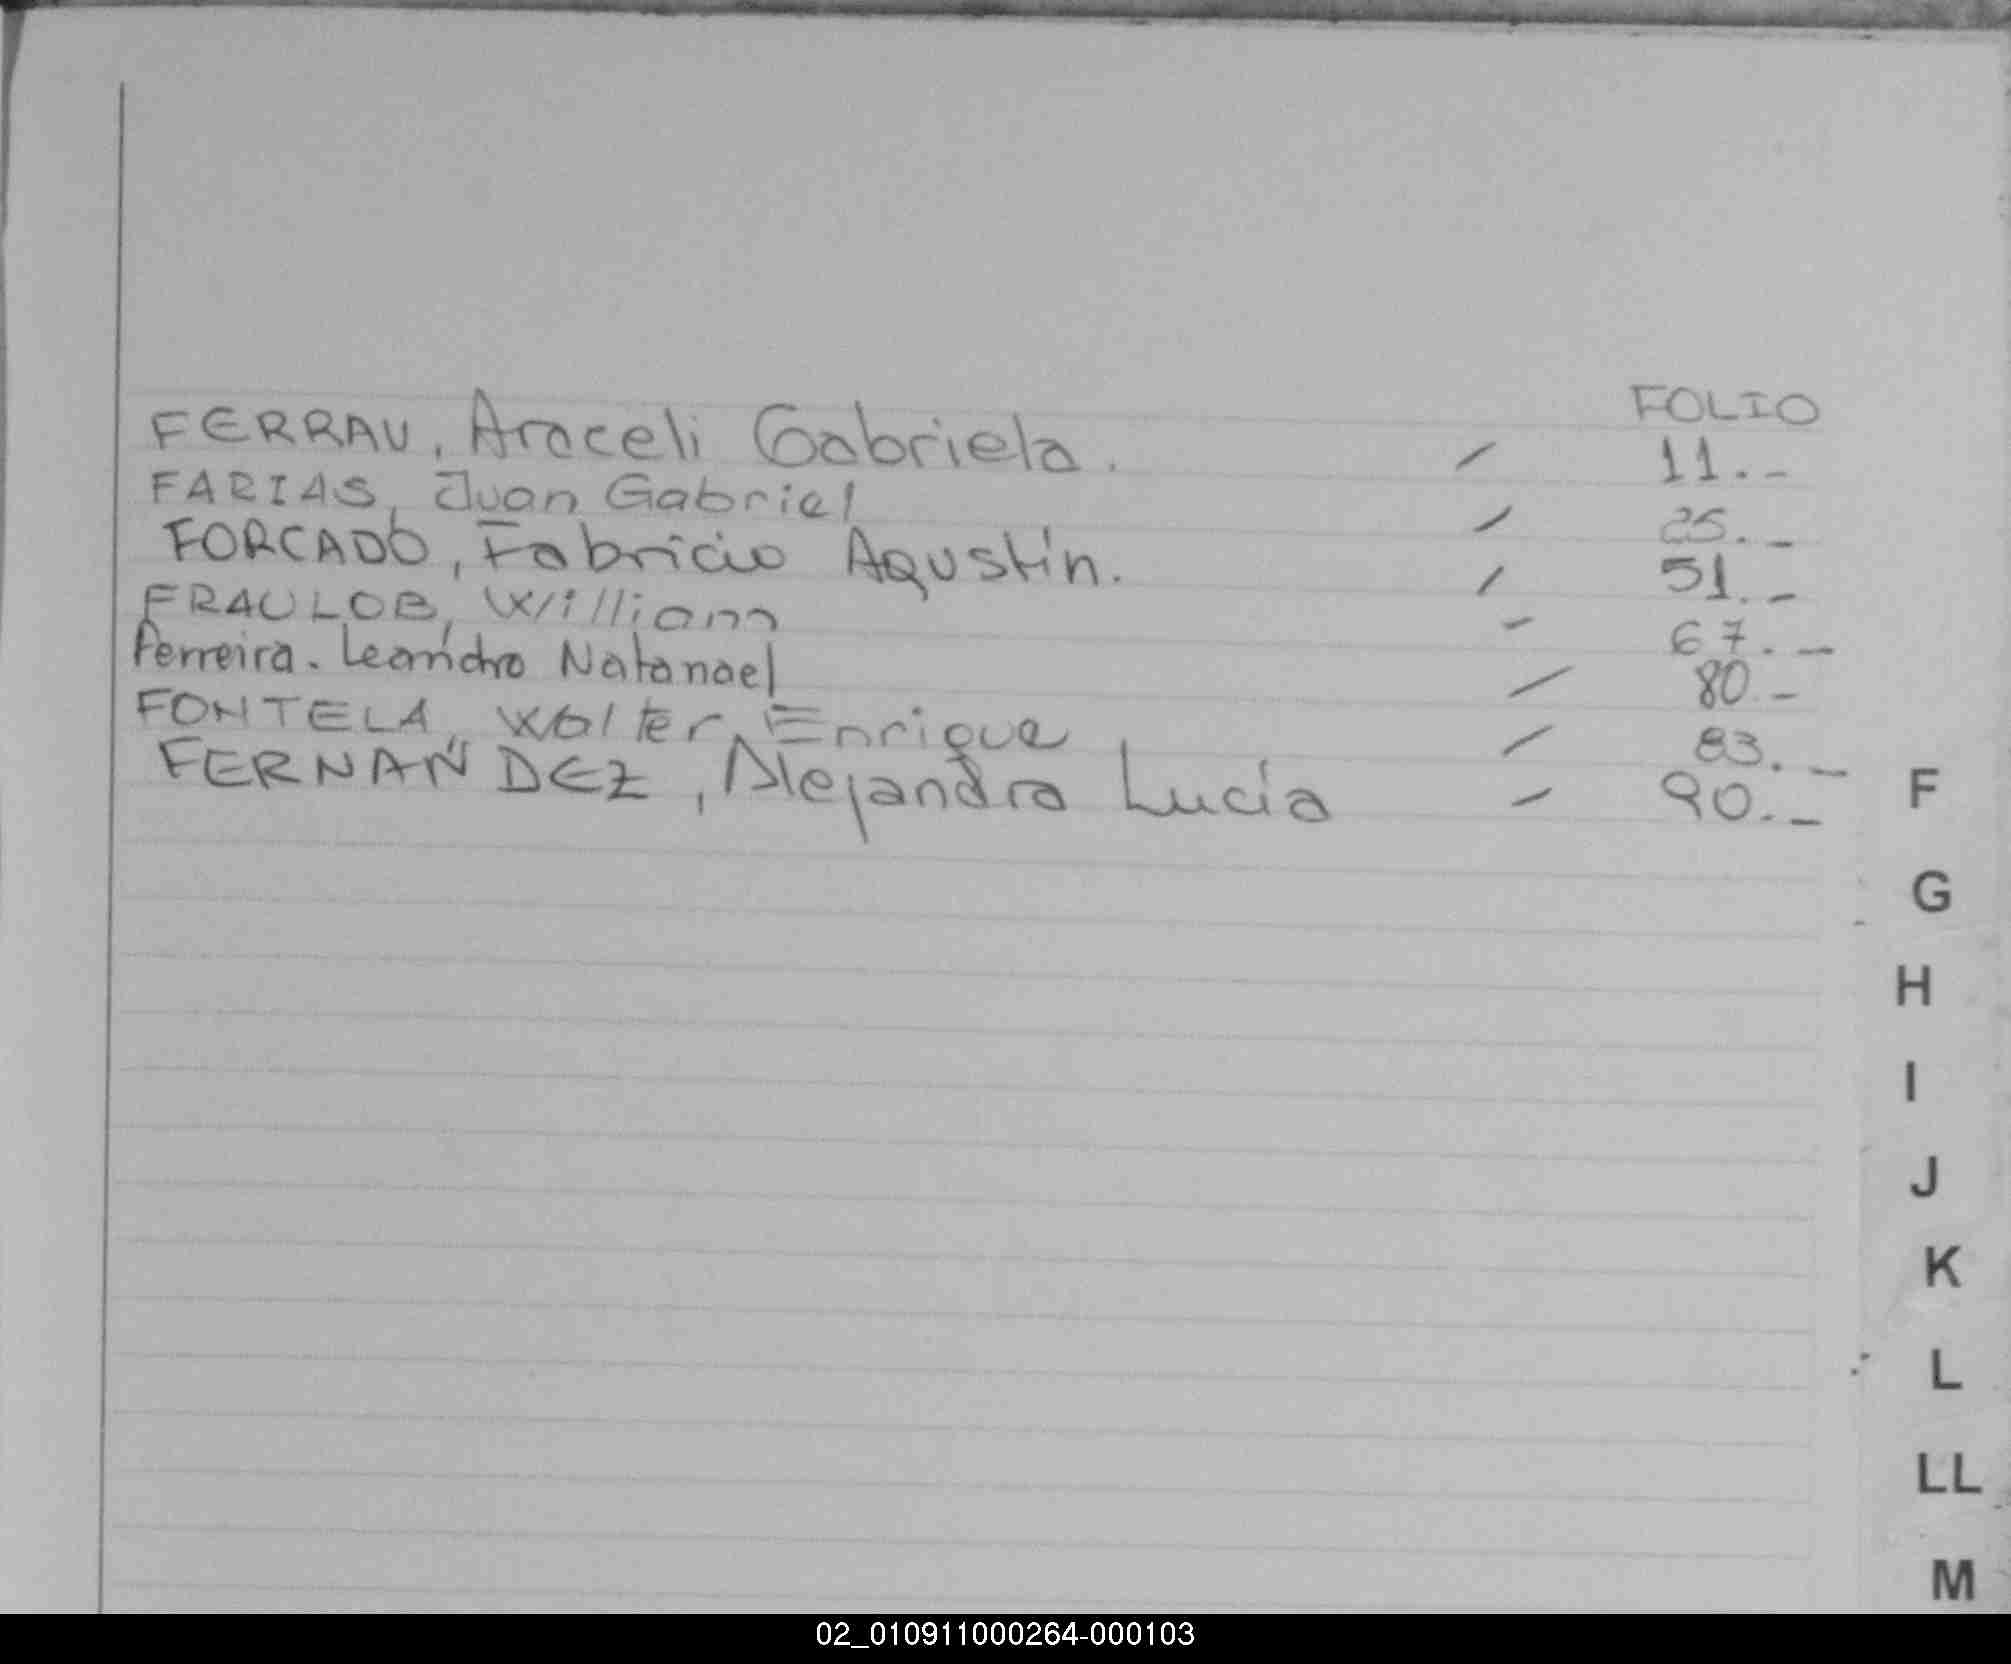 FOLIO
FERRAU, Araceli Gabriela. / 11.-
FARIAS, Juan Gabriel / 25.-
FORCADO, Fabricio Agustín. / 51.-
FRAULOB, William - 67.-
Ferreira. Leandro Natanael / 80.-
FONTELA, Walter Enrique / 83.-
FERNANDEZ, Alejandra Lucía - 90.-
F
G
H
I
J
K
L
LL
M
02_010911000264-000103